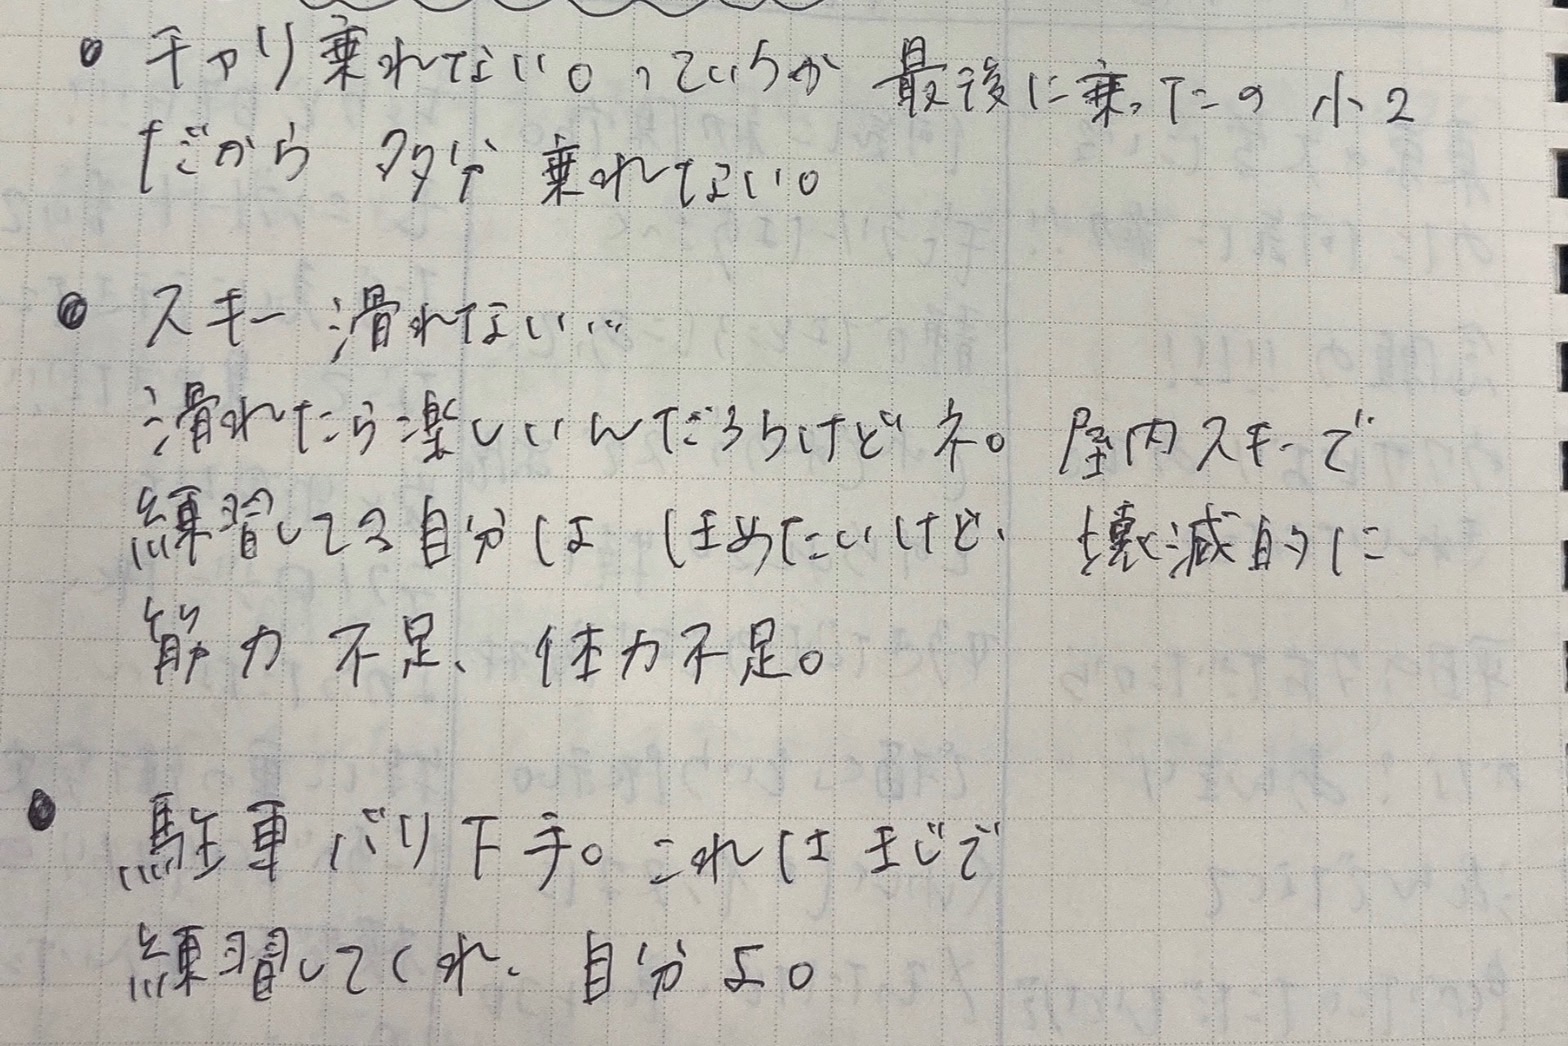 • チャリ乗れてない。っていうか 最後に乗ったの 小2
だから 多分 乗れてない。
• スキー 滑れない…
滑れたら楽しいんだろうけどネ。 屋内スキーで
練習してる自分は ほめたいけど、 壊滅的に
筋力 不足、 体力不足。
• 駐車 バリ下手。これは まじで
練習してくれ、 自分よ。